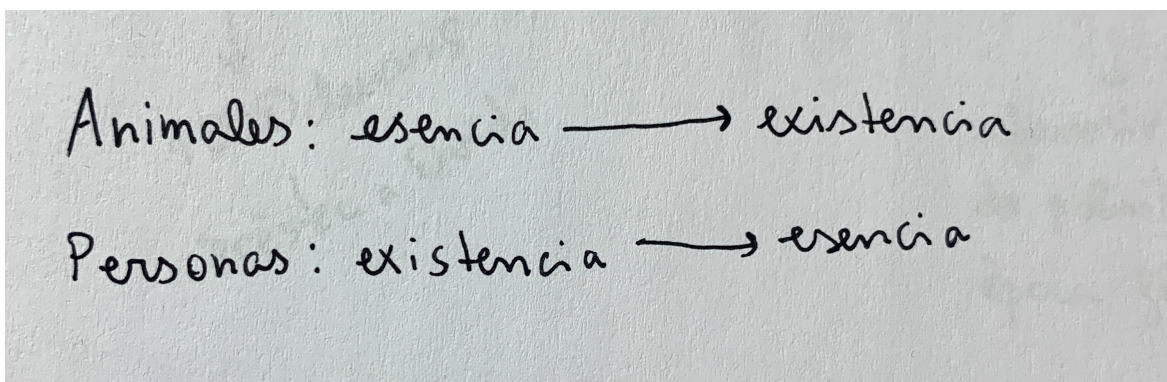 Animales: esencia → existencia
Personas: existencia → esencia